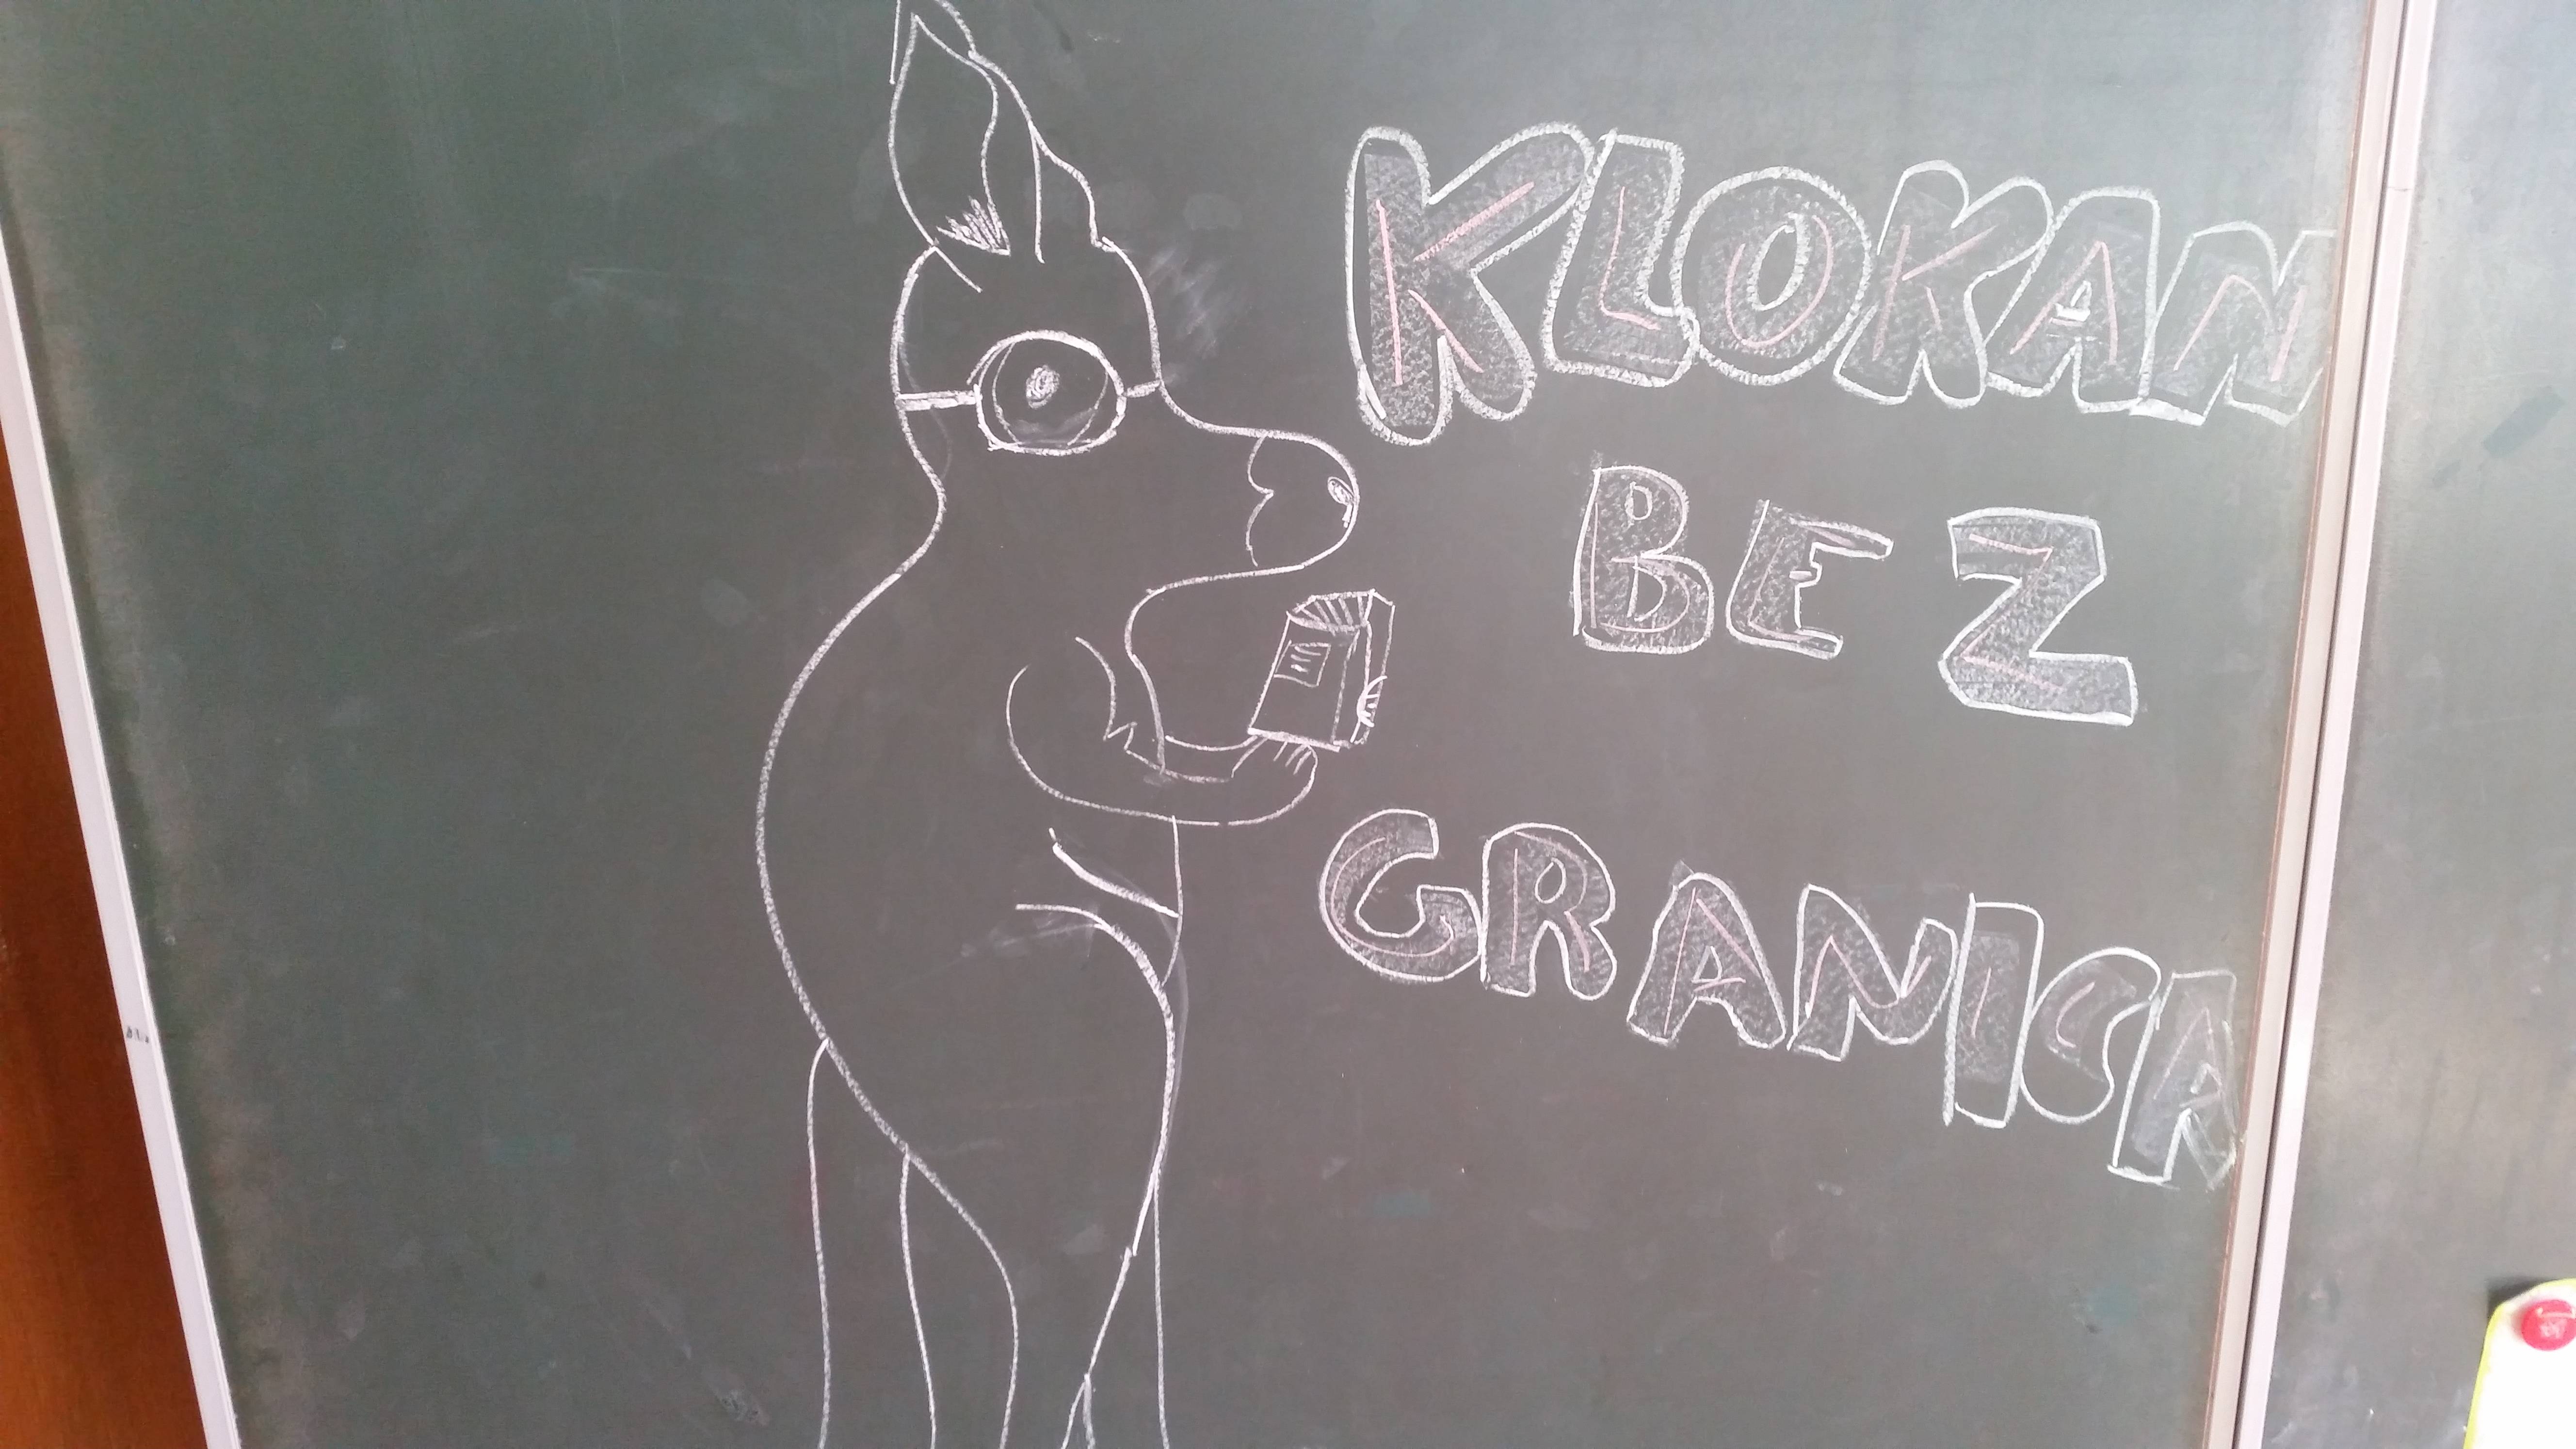 KLOKAN
BEZ
GRANICA